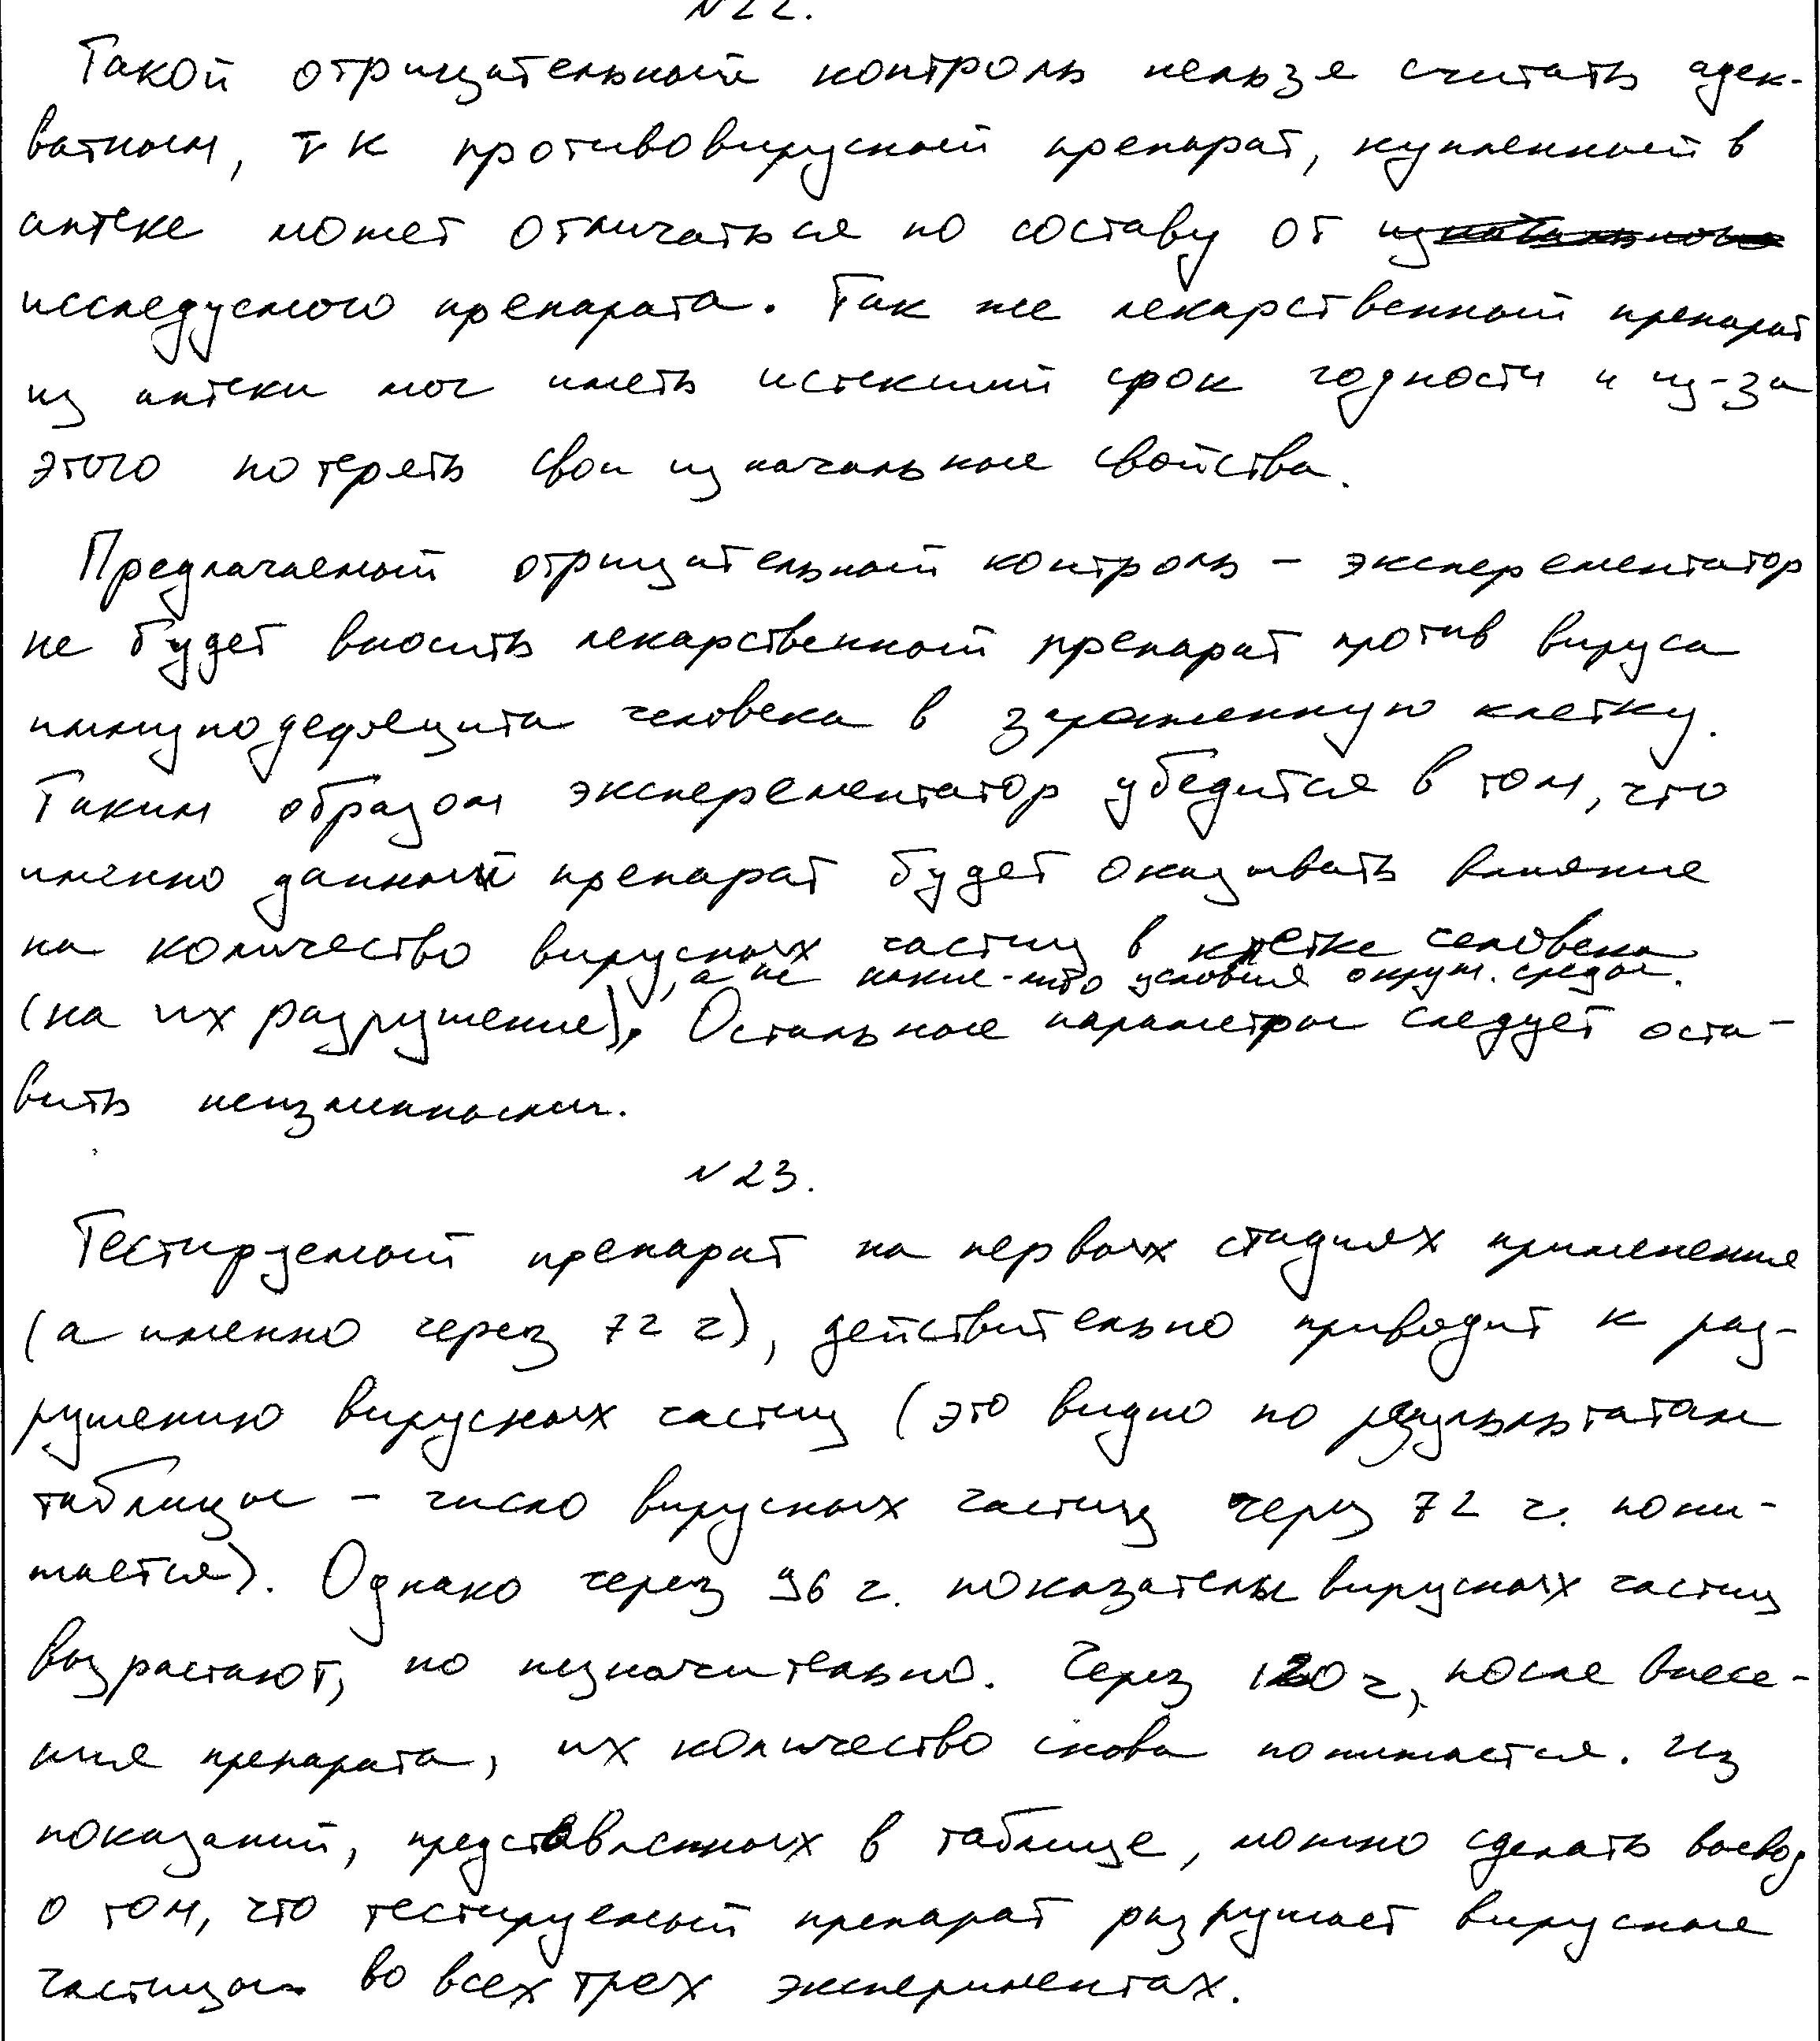 №22.
Такой отрицательный контроль нельзя считать адек-
ватным, т к противовирусный препарат, купленный в
аптеке может отличаться по составу от
исследуемого препарата. Так же лекарственный препарат
из аптеки мог иметь истекший срок годности и из-за
этого потерять свои изначальные свойства.
Предлагаемый отрицательный контроль - эксперементатор
не будет вносить лекарственный препарат против вируса
иммунодефицита человека в зараженную клетку.
Таким образом эксперементатор убедится в том, что
именно данный препарат будет оказывать влияние
на количество вирусных частиц в клетке человека
, а не какие-либо условия окруж. среды.
(на их разрушение). Остальные параметры следует оста-
вить неизменными.
№23.
Тестируемый препарат на первых стадиях применения
(а именно через 72 ч), действительно приводит к раз-
рушению вирусных частиц (это видно по результатам
таблицы - число вирусных частиц через 72 ч. пони-
жается). Однако через 96 ч. показатели вирусных частиц
возрастают, но незначительно. Через 120 ч, после внесе-
ния препарата, их количество снова понижается. Из
показаний, представленных в таблице, можно сделать вывод
о том, что тестируемый препарат разрушает вирусные
частицы во всех трех экспериментах.